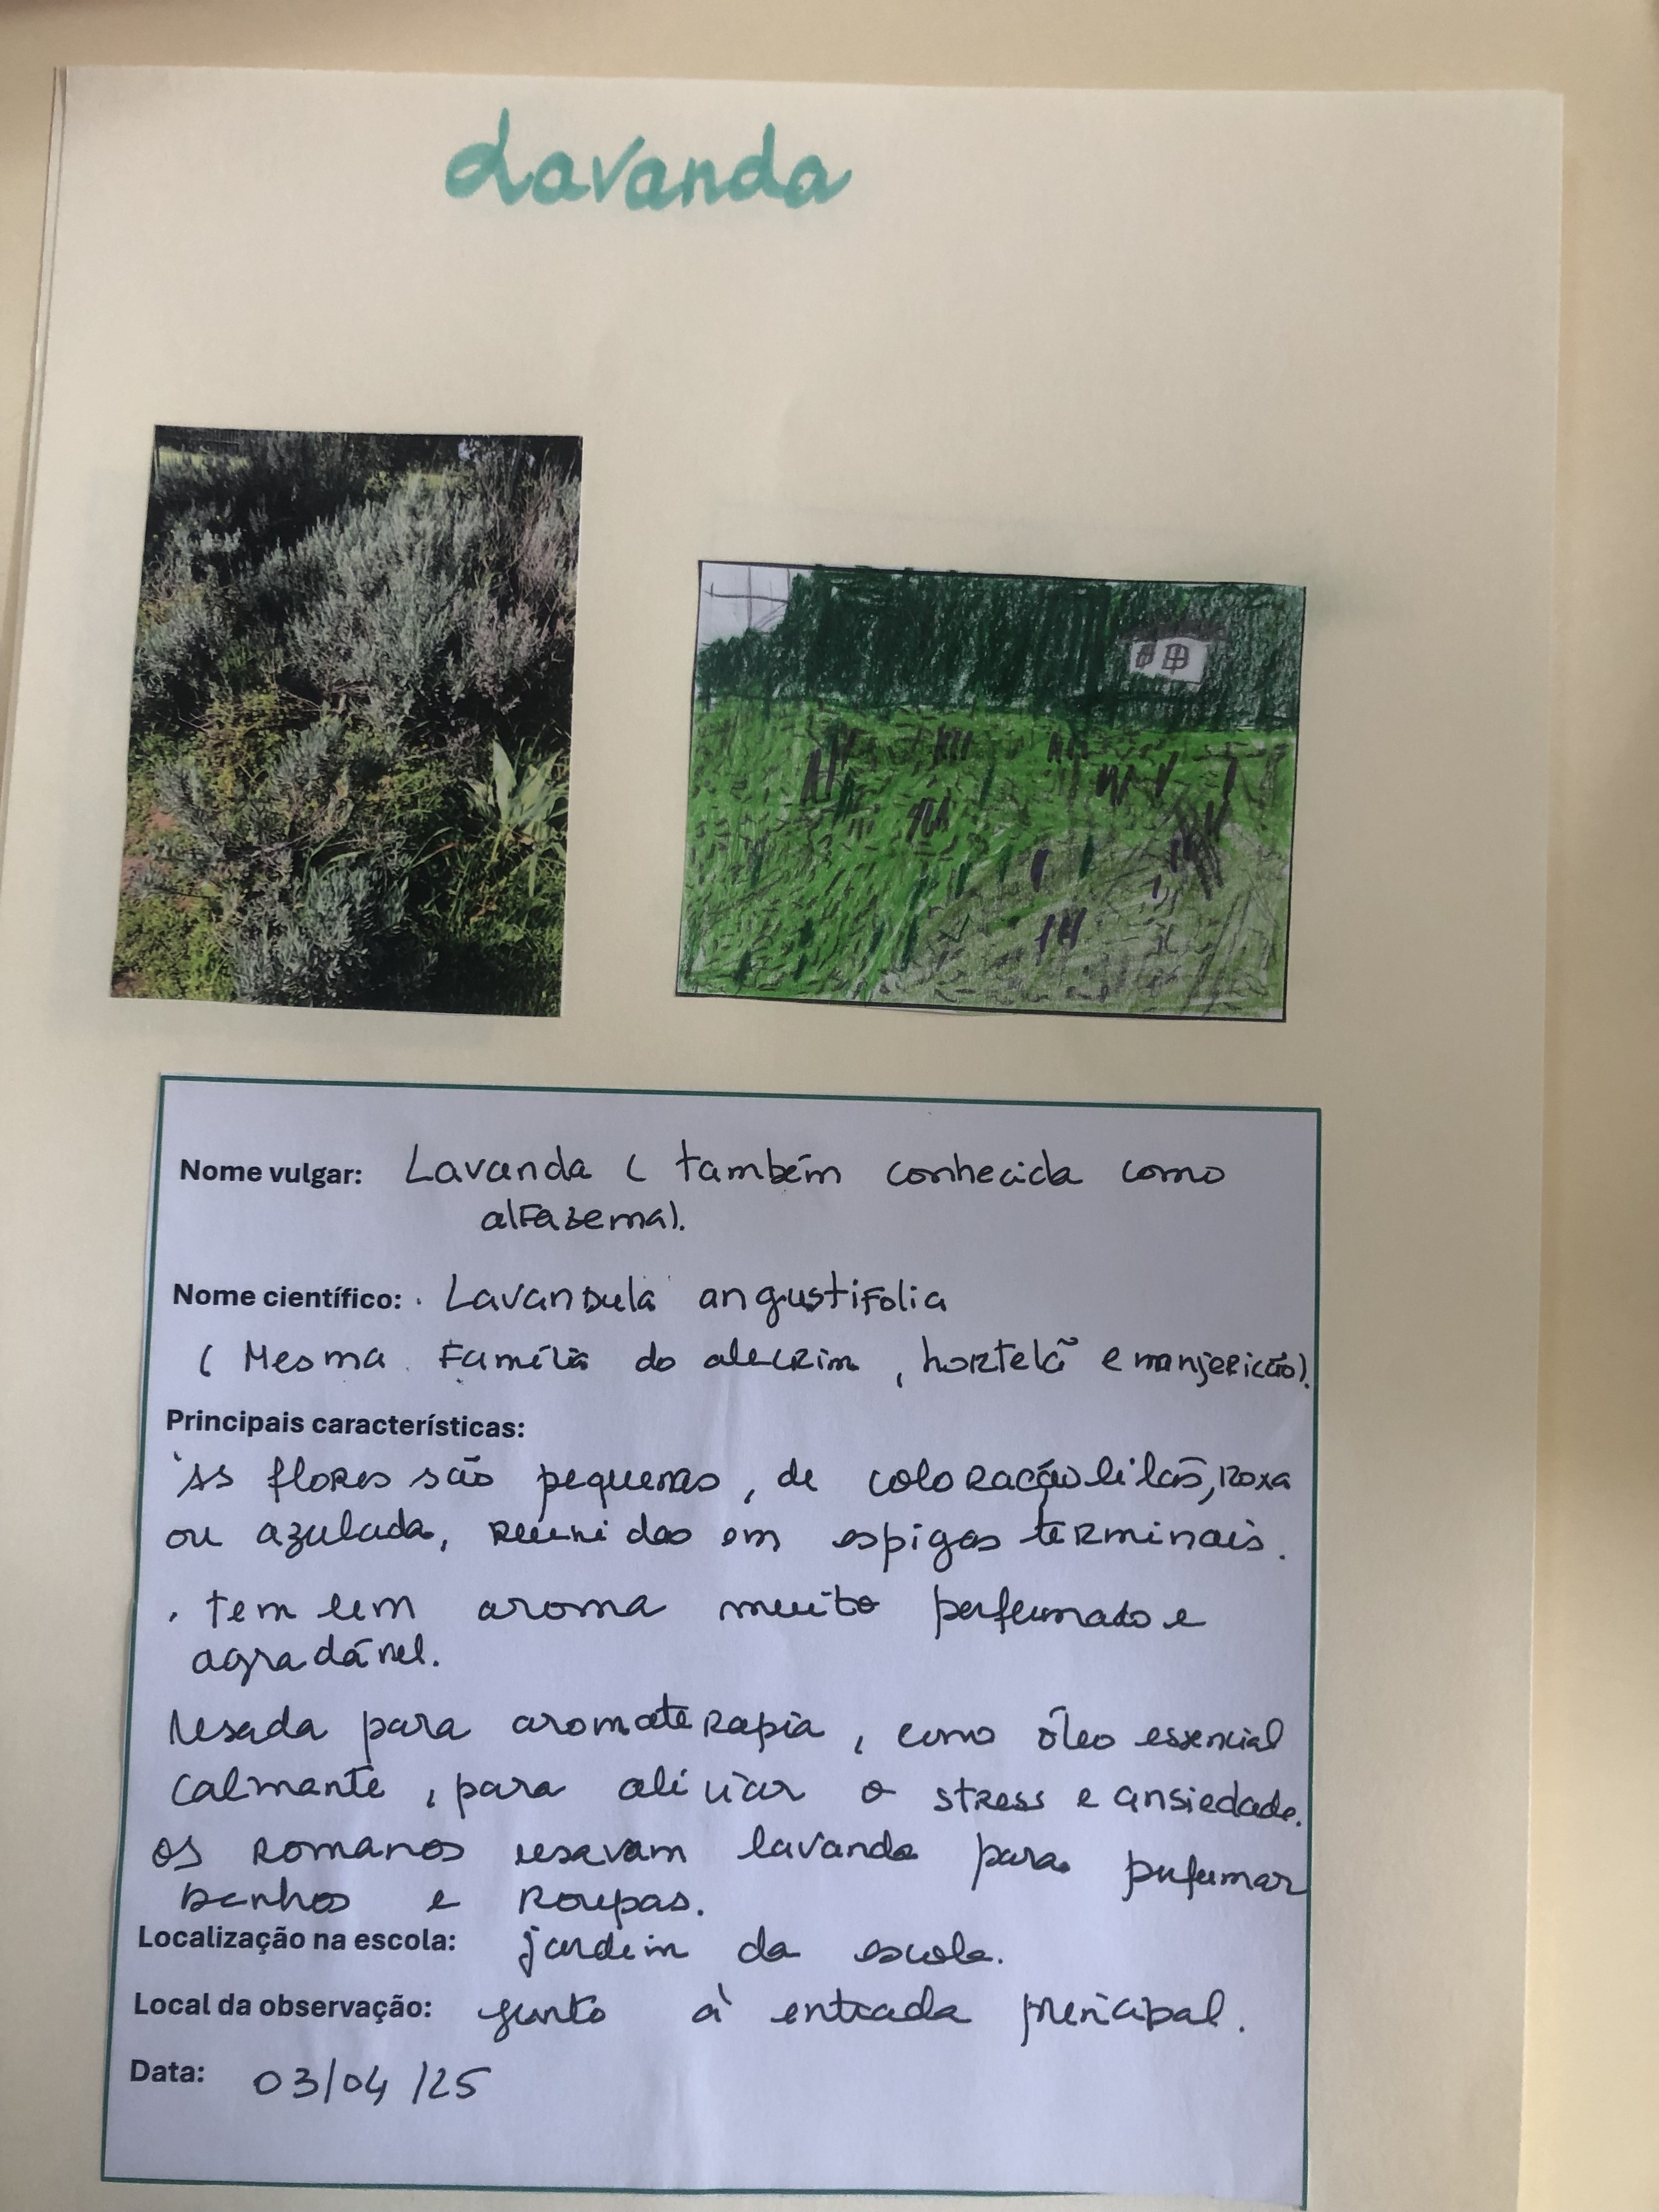 Lavanda
Nome vulgar: Lavanda ( também conhecida como
alfazema).
Nome científico: . Lavandula angustifolia
( Mesma família do alecrim, hortelã e manjericão).
Principais características:
As flores são pequenas, de coloração lilás, roxa
ou azulada, reunidas em espigas terminais.
. tem um aroma muito perfumado e
agradável.
Usada para aromaterapia, como óleo essencial
calmante, para aliviar o stress e ansiedade.
Os romanos usavam lavanda para pufumar
banhos e roupas.
Localização na escola: jardim da escola.
Local da observação: junto à entrada principal.
Data: 03/04/25